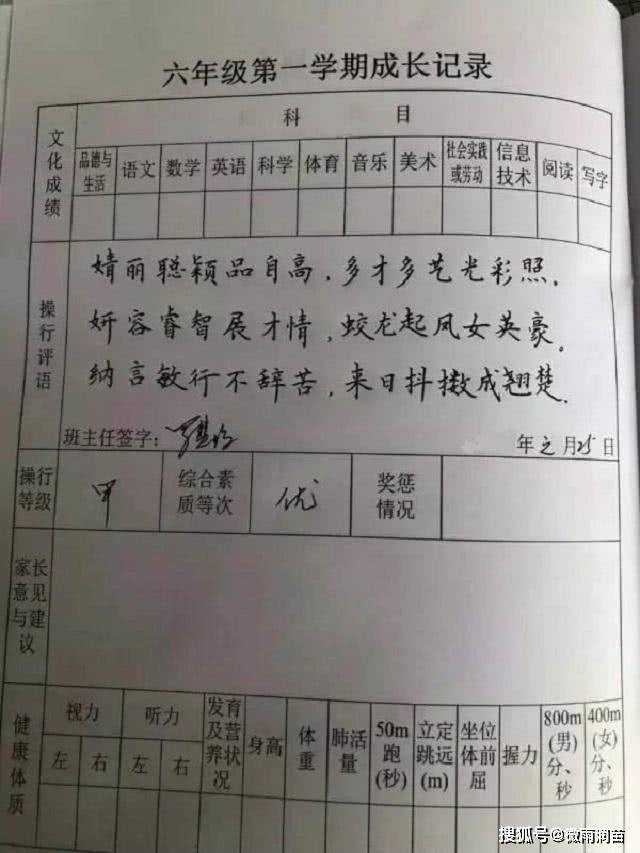 六年级第一学期成长记录
文化成绩
科 目
品德与生活 语文 数学 英语 科学 体育 音乐 美术 社会实践或劳动 信息技术 阅读 写字
操行评语
婧丽聪颖品自高，多才多艺光彩照。
妍容睿智展才情，蛟龙起凤女英豪。
纳言敏行不辞苦，来日抖擞成翘楚。
班主任签字： 年 月25日
操行等级 甲 综合素质等次 优 奖惩情况
家长意见与建议
健康体质
视力 听力 发育及营养状况 身高 体重 肺活量 50m跑(秒) 立定跳远(m) 坐位体前屈 握力 800m(男)分、秒 400m(女)分、秒
左 右 左 右
搜狐号@微雨润苗